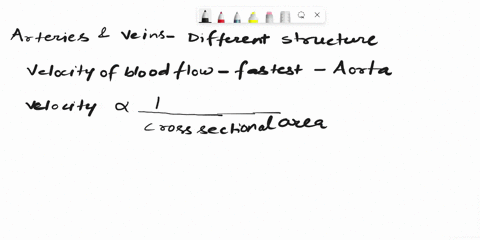 Arteries & veins- Different structure
Velocity of blood flow - fastest - Aorta
velocity ∝ 1
cross sectional area